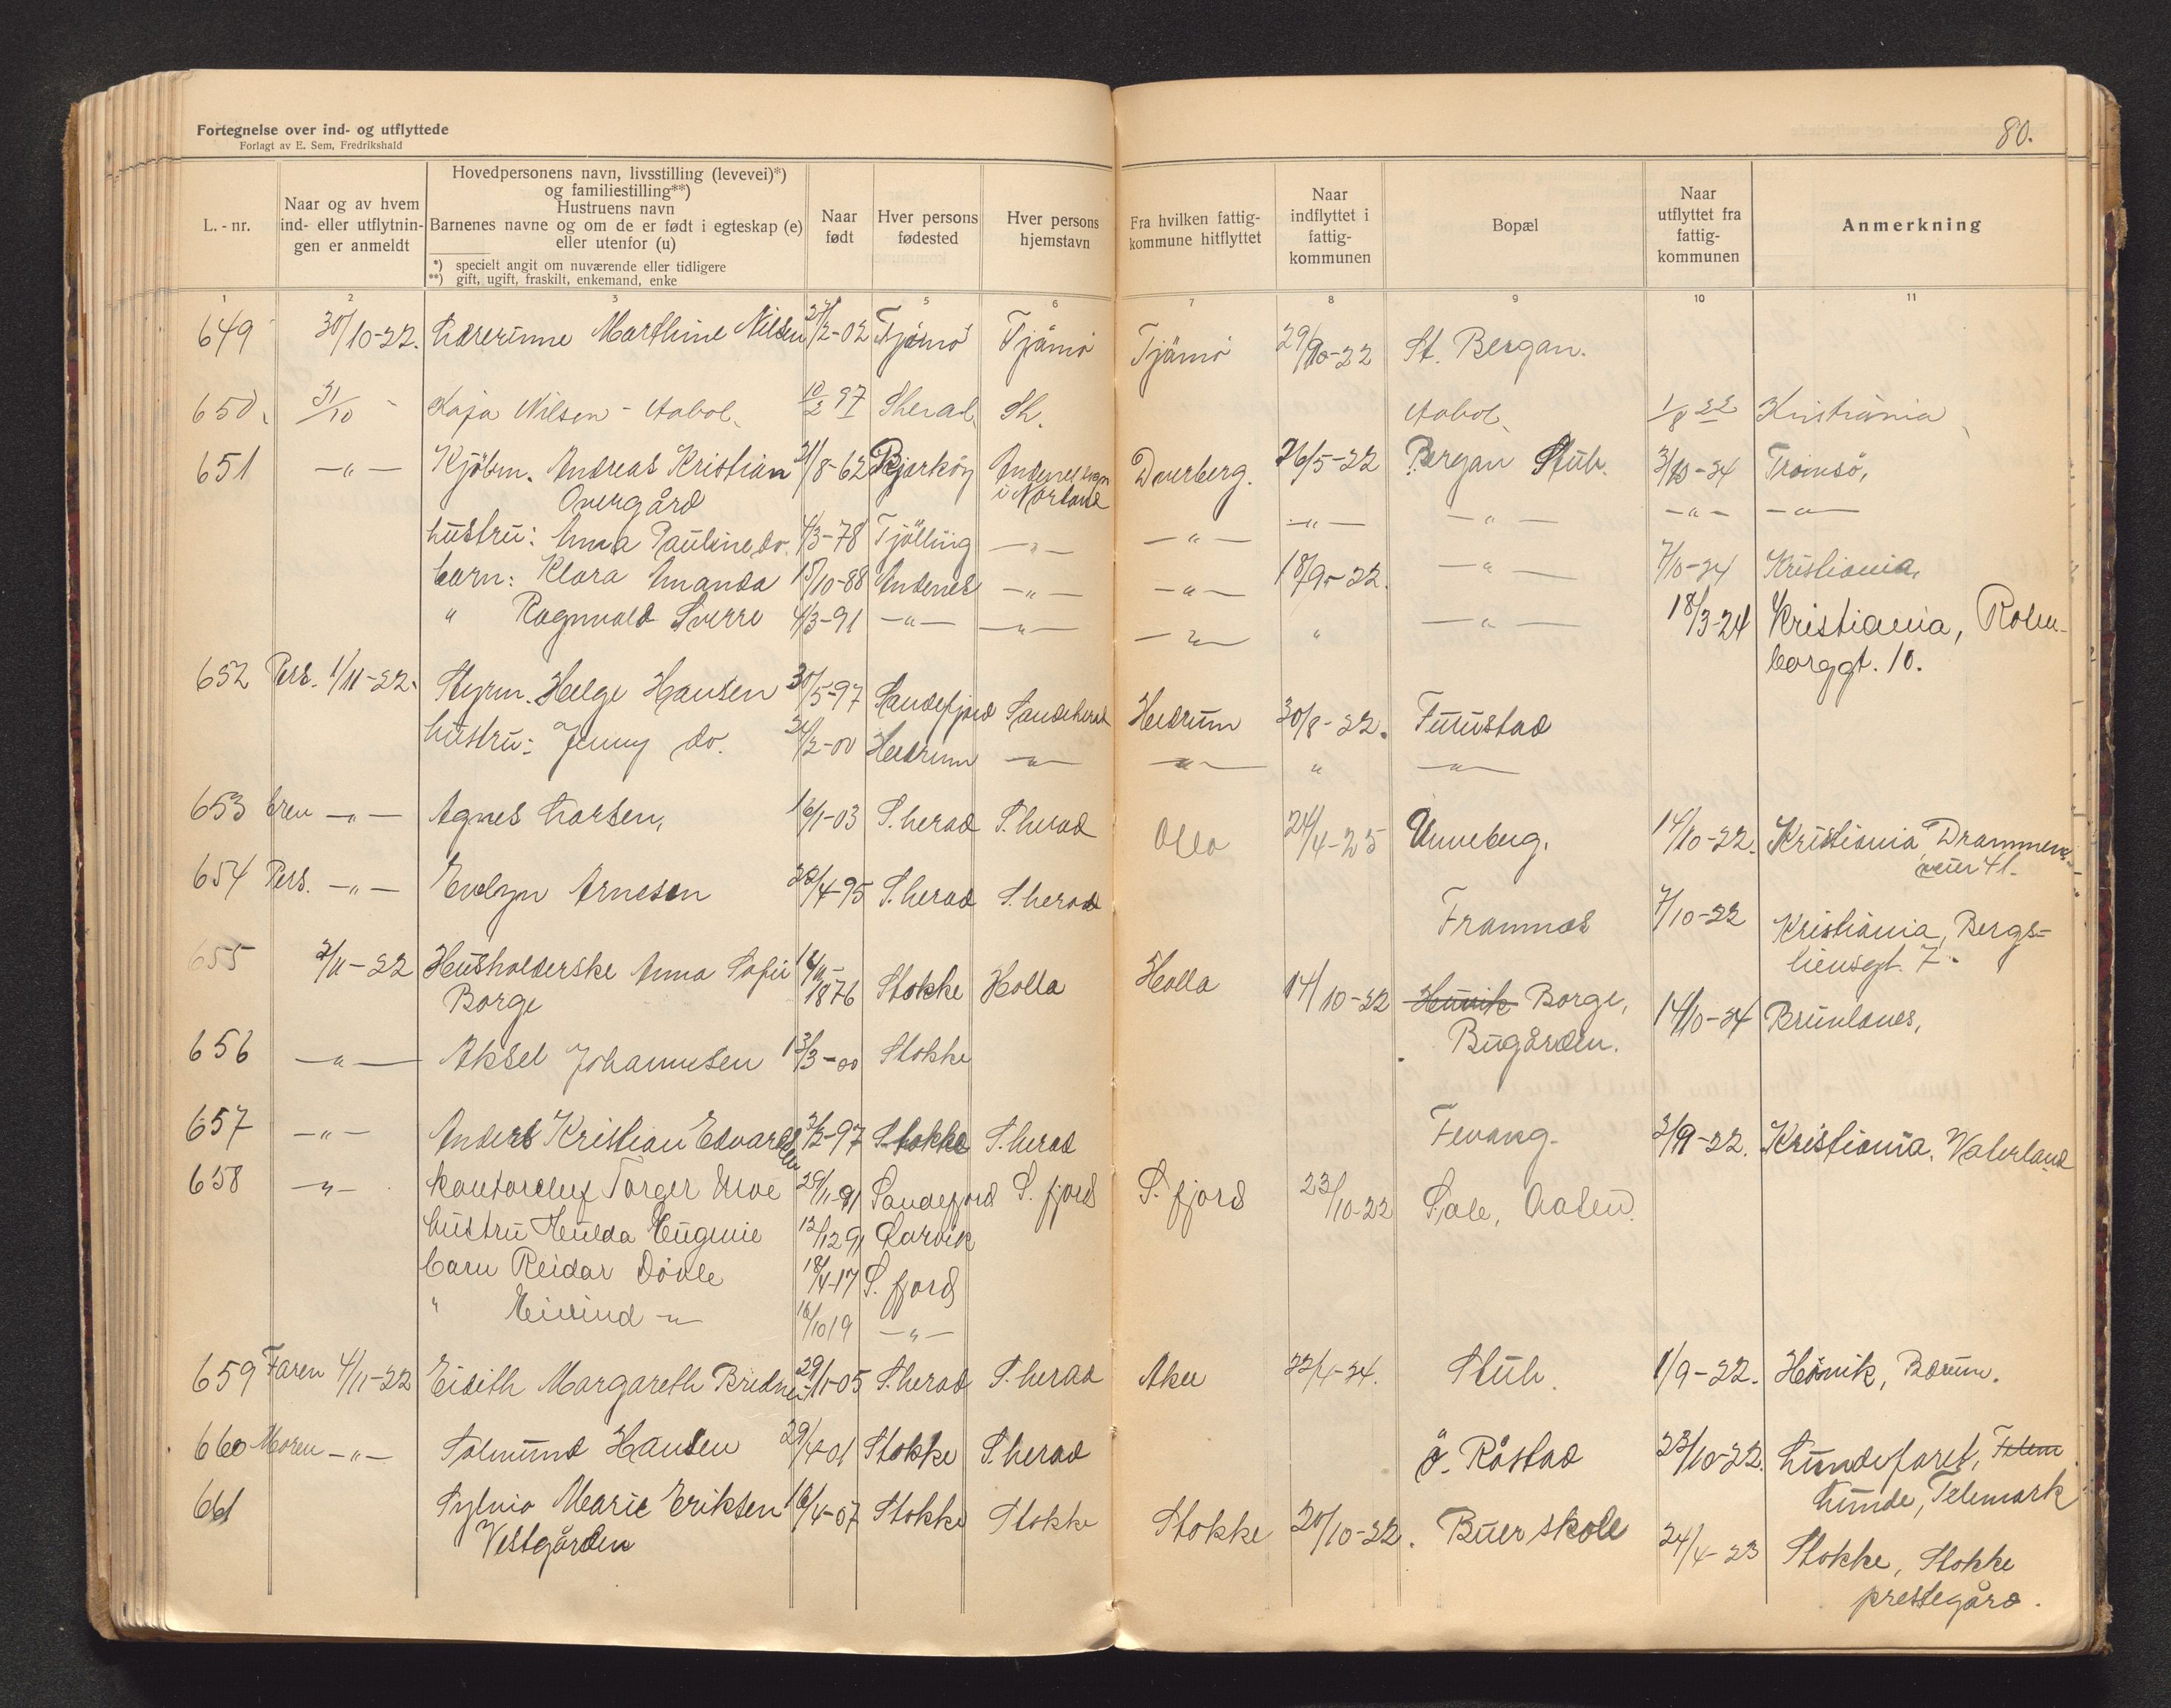 Fortegnelse over ind- og utflyttede
Forlagt av E. Sem, Fredrikshald
80.
L.-nr.
Naar og av hvem
ind- eller utflytnin-
gen er anmeldt
Hovedpersonens navn, livsstilling (levevei)*)
og familiestilling**)
Hustruens navn
Barnenes navne og om de er født i egteskap (e)
eller utenfor (u)
*) specielt angit om nuværende eller tidligere
**) gift, ugift, fraskilt, enkemand, enke
Naar
født
Hver persons
fødested
Hver persons
hjemstavn
Fra hvilken fattig-
kommune hitflyttet
Naar
indflyttet i
fattig-
kommunen
Bopæl
Naar
utflyttet fra
fattig-
kommunen
Anmerkning
1 2 3 5 6 7 8 9 10 11
649 30/10-22. Lærerinne Marthine Nilsen 27/2-02 Tjømø Tjømø Tjømø 29/10-22 St. Bergan.
650. 31/10 - Kaja Nilsen - Aabol. 10/2 97 Sherad. Sh. Aabol. 1/8 22 Kristiania
651 -"- Kjöbm. Andreas Kristian 21/8-62 Bjarköy Andenes sogn Dverberg. 26/5-22 Bergan Stub. 3/10-24 Tromsö,
Overgård i Norland
hustru: Anna Pauline do. 4/3-78 Tjölling -"- -"- -"- -"- -"- -"-
barn: Klara Amanda 15/10-88 Andenes -"- -"- 18/9-22. -"- 7/10-24 Kristiania,
" Ragnvald Sverre 4/3-91 -"- -"- -"- " -"- 18/3-24 Kristiania, Rosen-
borggt. 10.
652 Pers. 1/11-22. Styrm. Helge Hansen 30/5-97 Sandefjord Sandeherad Hedrum 30/8-22. Furustad
hustru: Jenny do. 21/2-00 Hedrum -"- -"- " -"-
653 Eren -"- Agnes Larsen, 16/1-03 S.herad S.herad Oslo 24/4-25 Unneberg. 14/10-22. Kristiania Drammens-
veien 41.
654 Pers. -"- Evelyn Arnesen 22/4-95 S.herad S.herad Framnæs 7/10-22 Kristiania, Bergs-
liensgt. 7.
655 2/11-22 Husholderske Anna Sofie 14/11-1876 Stokke Holla Holla 14/10-22 Hunik Borge, 14/10-24 Brunlanes,
Borge Bugården.
656 -"- Aksel Johannesen 13/3-00 Stokke
657 -"- Anders Kristian Edvardsen 3/2-97 Stokke S.herad Fevang. 2/9-22. Kristiania. Vaterland
658 -"- Kontorchef Torger Moe 25/11-91 Sandefjord S. fjord S. fjord 23/10-22 Sole, Aasen.
hustru Hulda Eugenie 12/12 91 Larvik
barn Reidar Dövle 18/4-17 S. fjord
" Eivind -"- 16/10 19 -"-
659 Faren 4/11-22 Eidith Margareth Bredne 29/1-05 S.herad S.herad Aker 22/4-24. Stub. 1/9-22. Hövik, Bærum.
660 Moren -"- Salmund Hansen 29/4-01 Stokke S.herad ö. Råstad 23/10-22. Lundefaret, Telem
Lunde, Telemark
661 Sylvia Marie Eriksen 16/4-07 Stokke Stokke Stokke 20/10-22. Buer skole 24/4-23 Stokke, Stokke
Vestgården prestegård.